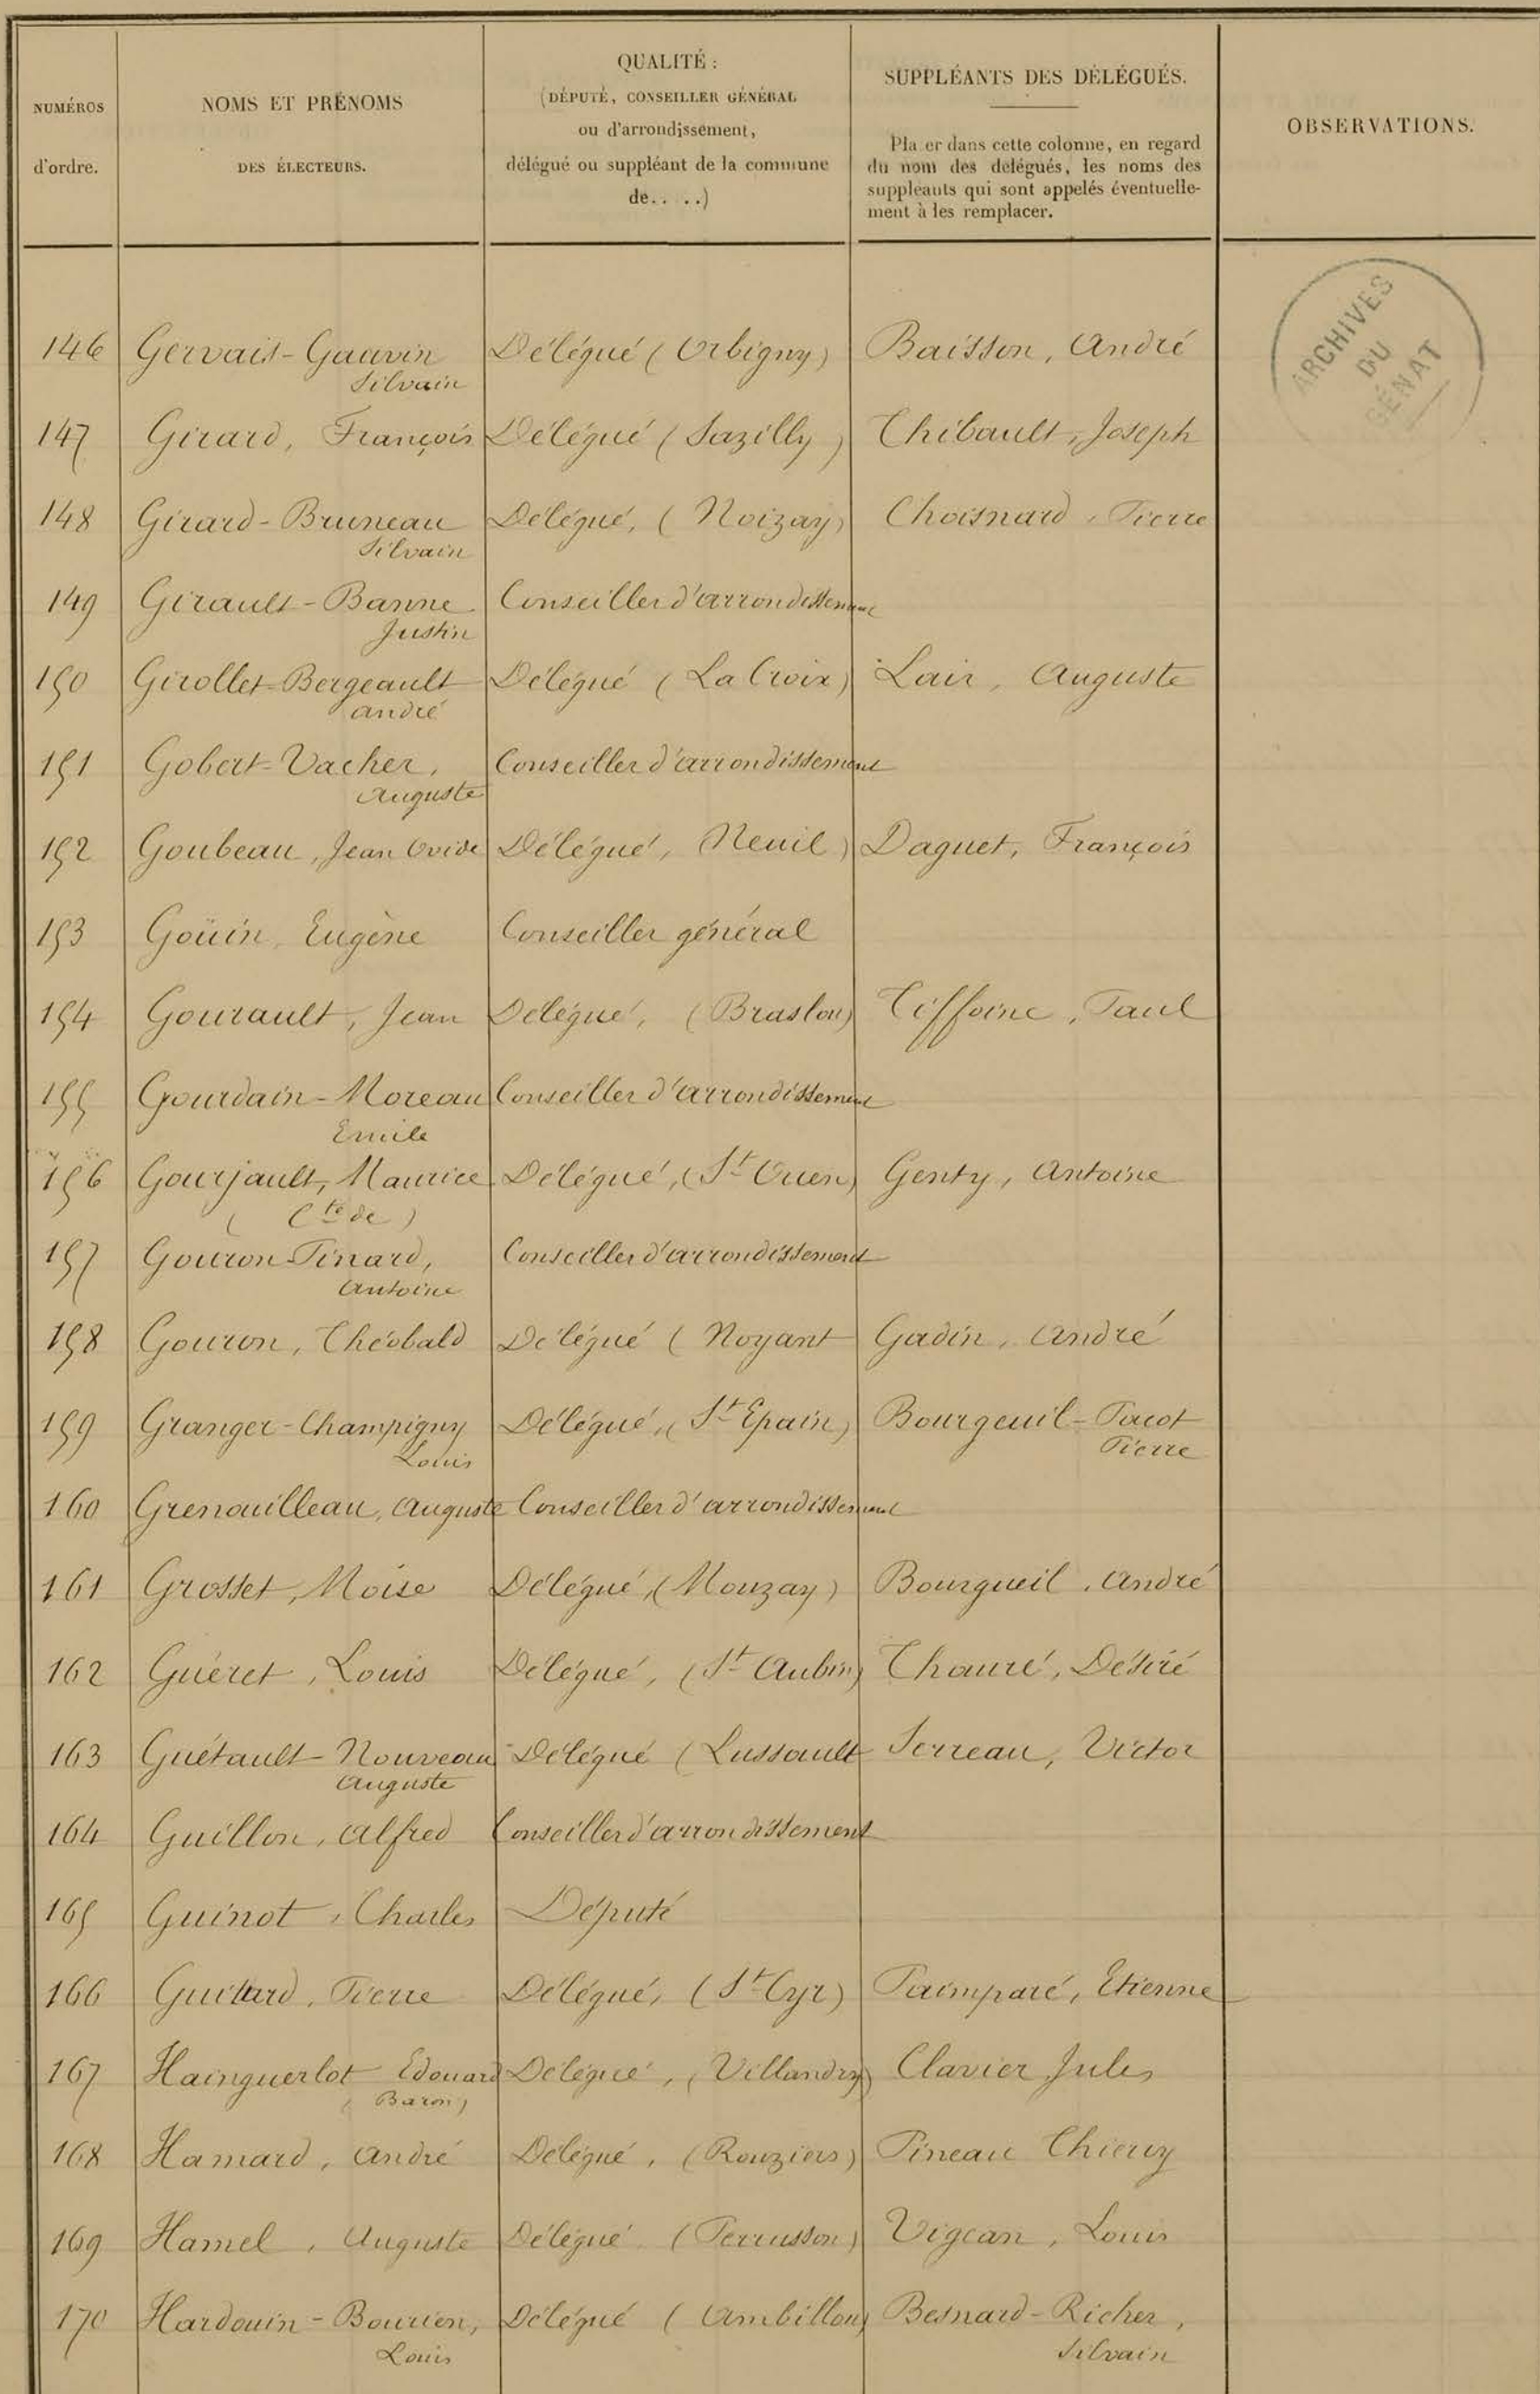 NUMÉROS
d'ordre.
NOMS ET PRÉNOMS
DES ÉLECTEURS.
QUALITÉ :
(DÉPUTÉ, CONSEILLER GÉNÉRAL
ou d'arrondissement,
délégué ou suppléant de la commune
de.. ..)
SUPPLÉANTS DES DÉLÉGUÉS.
Pla er dans cette colonne, en regard
du nom des délégués, les noms des
suppléants qui sont appelés éventuelle-
ment à les remplacer.
OBSERVATIONS.
ARCHIVES
DU
SÉNAT
146 Gervais-Gauvin Délégué (Orbigny) Baisson, André
Silvain
147 Girard, François Délégué (Sazilly) Thibault, Joseph
148 Girard-Bruneau Délégué, (Noizay) Choisnard, Pierre
Silvain
149 Girault-Banne Conseiller d'arrondissement
Justin
150 Girollet-Bergeault Délégué (La Croix) Lair, Auguste
André
151 Gobert-Vacher, Conseiller d'arrondissement
Auguste
152 Goubeau, Jean Ovide Délégué, Neuil) Daguet, François
153 Goüin, Eugène Conseiller général
154 Gourault, Jean Délégué, (Braslou) Tiffoine, Paul
155 Gourdain-Moreau Conseiller d'arrondissement
Emile
156 Gourjault, Maurice Délégué, (St Ouen) Genty, Antoine
(Cte de)
157 Gouron-Pinard, Conseiller d'arrondissement
Antoine
158 Gouron, Théobald Délégué (Noyant Gadin, André
159 Granger-Champigny Délégué, (St Epain) Bourgeuil-Pacot
Louis Pierre
160 Grenouilleau, Auguste Conseiller d'arrondissement
161 Grosset, Moïse Délégué, (Mouzay) Bourgueil, André
162 Guéret, Louis Délégué, (St Aubin) Thauré, Désiré
163 Guétault-Nouveau Délégué (Lussault Serreau, Victor
Auguste
164 Guillon, Alfred Conseiller d'arrondissement
165 Guinot, Charles Député
166 Guitard, Pierre Délégué, (St Cyr) Paimparé, Etienne
167 Hainguerlot Edouard Délégué, (Villandry) Clavier Jules
(Baron)
168 Hamard, André Délégué, (Rouziers) Pineau Thierry
169 Hamel, Auguste Délégué (Perrusson) Vigean, Louis
170 Hardouin-Bourien, Délégué (Ambillou) Besnard-Richer,
Louis Silvain